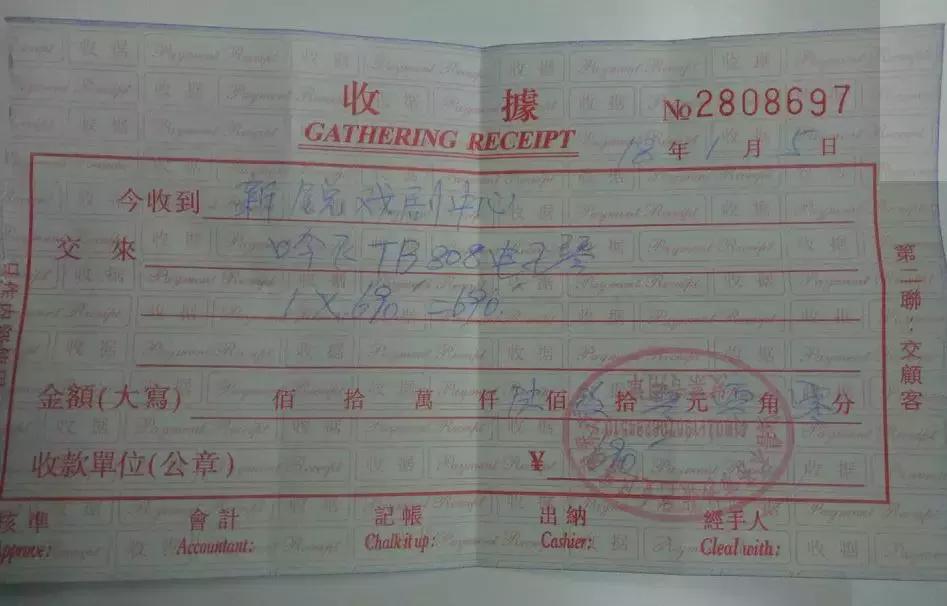 收 據 №2808697
GATHERING RECEIPT
18 年 1 月 5 日
今收到 新院戏剧中心
交 來 TB808电子琴
1 X 690 = 690.
金額(大寫) 佰 拾 萬 仟 陆 佰 玖 拾 零 元 零 角 零 分
收款單位(公章) ¥ 690
第二聯:交顧客
核準 會計 記帳 出納 經手人
Approve: Accountant: Chalk it up: Cashier: Cleal with: